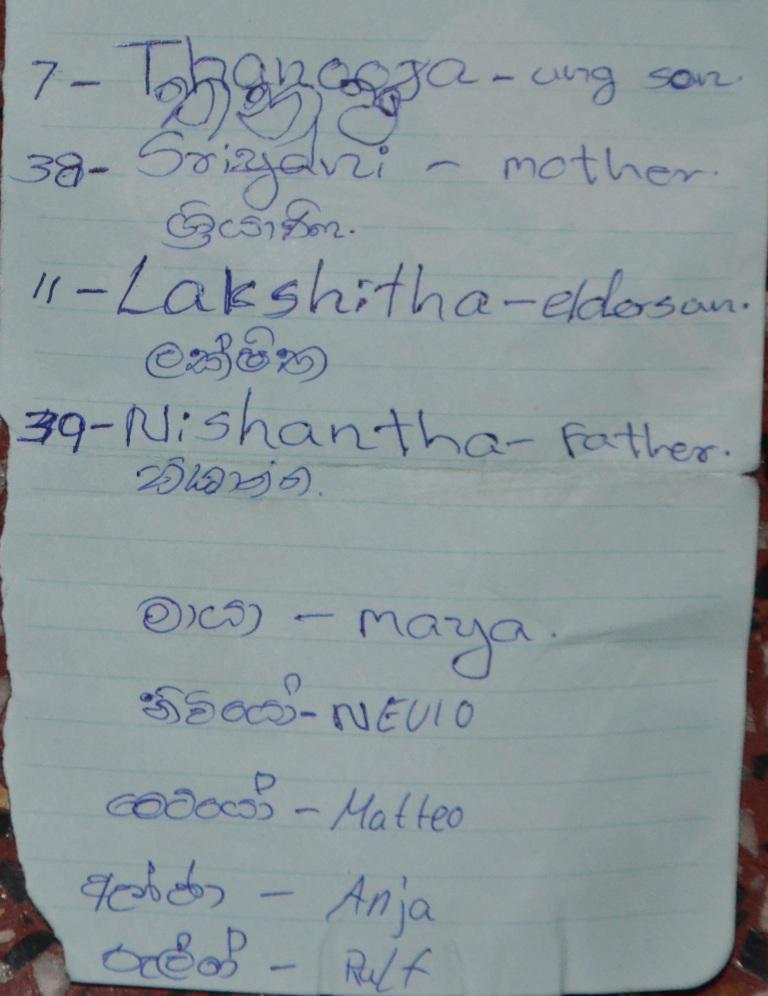 7- Thanooja - ung son.
තනුජ
38- Sriyani - mother.
ශ්‍රියාණි.
11 - Lakshitha - elderson.
ලක්ෂිත
39- Nishantha - Father.
නිශාන්ත.
මායා - maya.
නිවියෝ - NEVIO
මෙටයෝ - Matteo
අන්ජා - Anja
රුල්ෆ් - Rulf